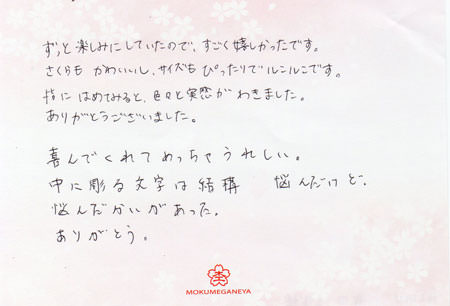 ずっと楽しみにしていたので、すごく嬉しかったです。
さくらも かわいいし、サイズも ぴったりで ルンルンです。
指に はめてみると、色々と実感が わきました。
ありがとうございました。
喜んでくれてめっちゃうれしい。
中に彫る文字は結構 悩んだけど、
悩んだかいがあった。
ありがとう。
MOKUMEGANEYA